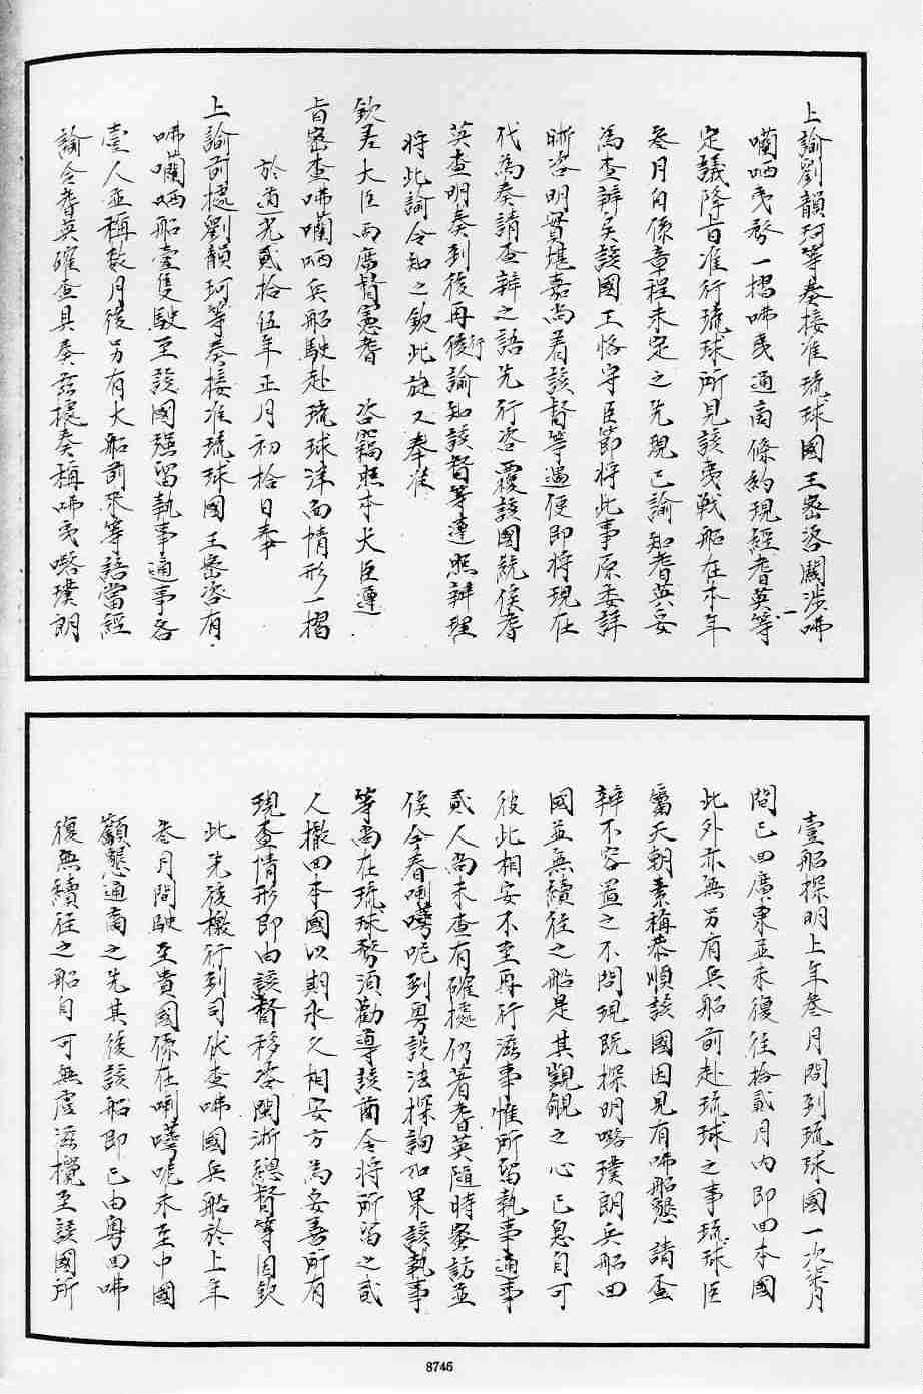 上諭劉韻珂等奏接准琉球國王密咨關涉咈
囒哂夷務一摺咈夷通商條約現經耆英等
定議降旨准行琉球所見該夷戰船在本年
叁月自係章程未定之先現已諭知耆英妥
為查辦矣該國王恪守臣節將此事原委詳
晰咨明實堪嘉尚着該督等遇便即將現在
代為奏請查辦之語先行咨覆該國統俟耆
英查明奏到後再行諭知該督等遵照辦理
將此諭令知之欽此旋又奉准
欽差大臣兩廣督憲耆 咨竊照本大臣遵
旨密查咈囒哂兵船駛赴琉球洋面情形一摺
於道光貳拾伍年正月初拾日奉
上諭前據劉韻珂等奏接准琉球國王密咨有
咈囒哂船壹隻駛至該國強留執事通事各
壹人並稱數月後另有大船前來等語當經
諭令耆英確查具奏茲據奏稱咈夷嚕璞朗
壹船探明上年叁月間到琉球國一次柒月
間已回廣東並未復往拾貳月內即回本國
此外亦無另有兵船前赴琉球之事琉球臣
屬天朝素稱恭順該國因見有咈船懇請查
辦不容置之不問現既探明嚕璞朗兵船回
國並無續往之船是其覬覦之心已息自可
彼此相安不至再行滋事惟所留執事通事
貳人尚未查有確據仍著耆英隨時密訪並
俟今春喇咢呢到粵設法探詢如果該執事
等尚在琉球務須勸導該酋令將所留之貳
人撤回本國以期永久相安方為妥善所有
現查情形即由該督移咨閩浙總督等因欽
此先後檄行到司伏查咈國兵船於上年
叁月間駛至貴國係在喇咢呢未至中國
籲懇通商之先其後該船即已由粵回咈
復無續往之船自可無虞滋擾至該國所
8746